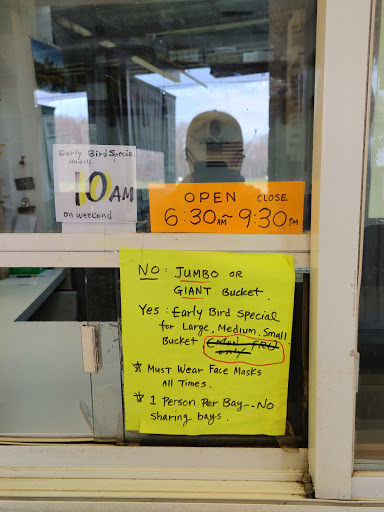 Early Bird Special
until
10 AM
on weekend
OPEN CLOSE
6:30 AM ~ 9:30 PM
NO: JUMBO OR
GIANT Bucket.
Yes: Early Bird Special
for Large, Medium, Small
Bucket (Mon - FRI
only)
☆ Must Wear Face Masks
All Times.
☆ 1 Person Per Bay--No
sharing bays.